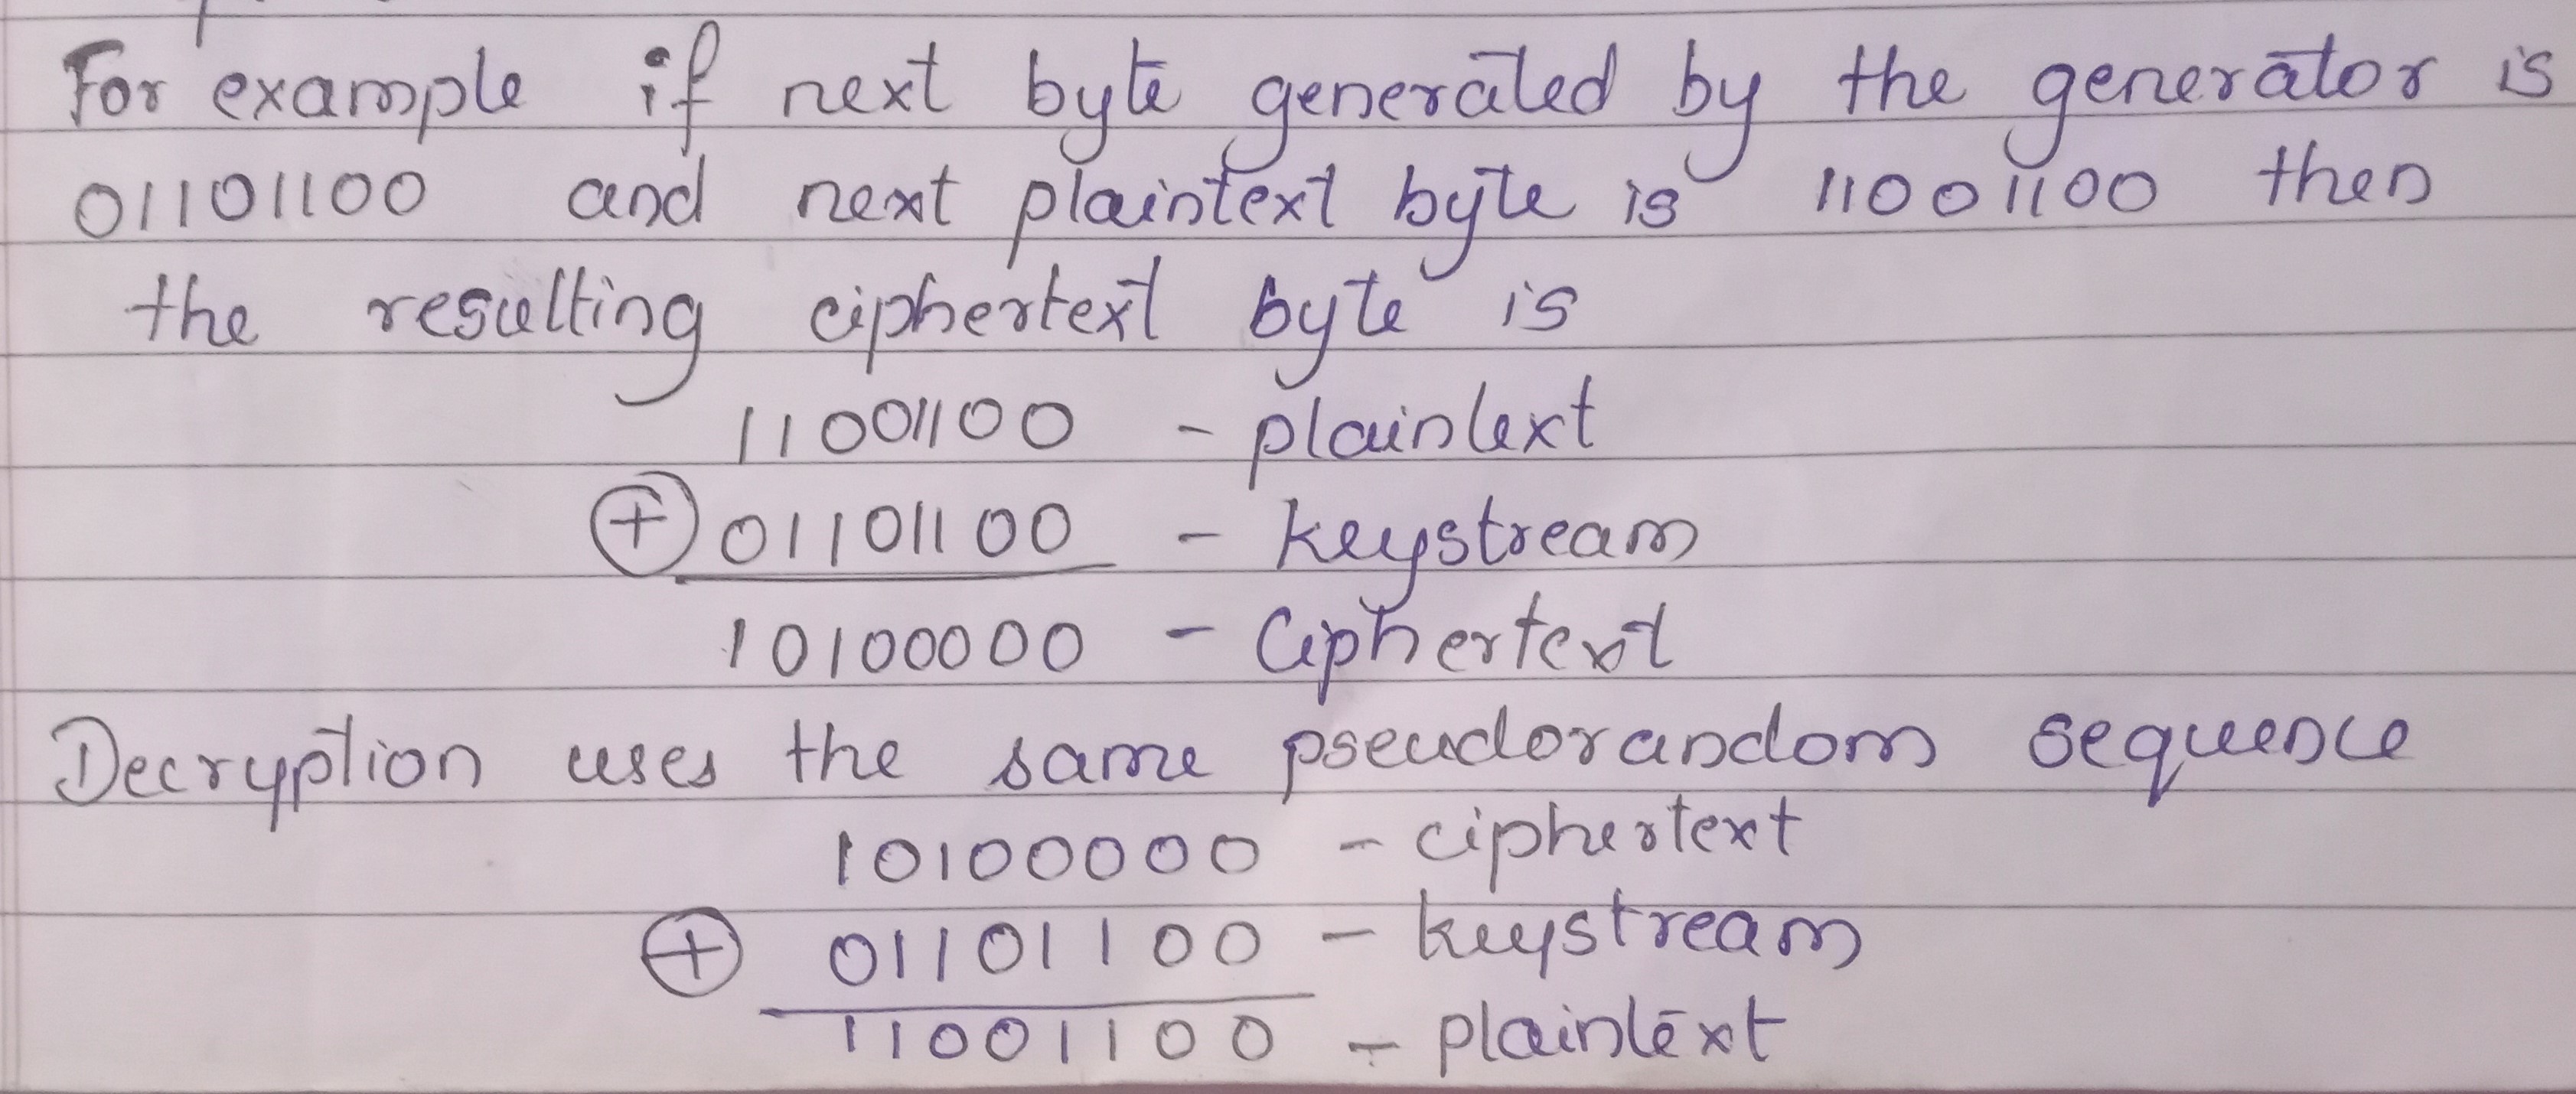 For example if next byte generated by the generator is
01101100 and next plaintext byte is 11001100 then
the resulting ciphertext byte is
11001100 - plaintext
⊕ 01101100 - keystream
10100000 - Ciphertext
Decryption uses the same pseudorandom sequence
10100000 - ciphertext
⊕ 01101100 - keystream
11001100 - plaintext